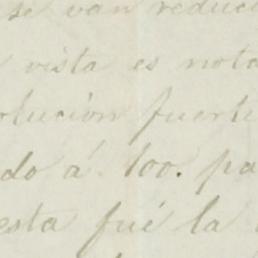 se van reduci
vista es nota
olución fuerte
do á 100. pa
esta fué la